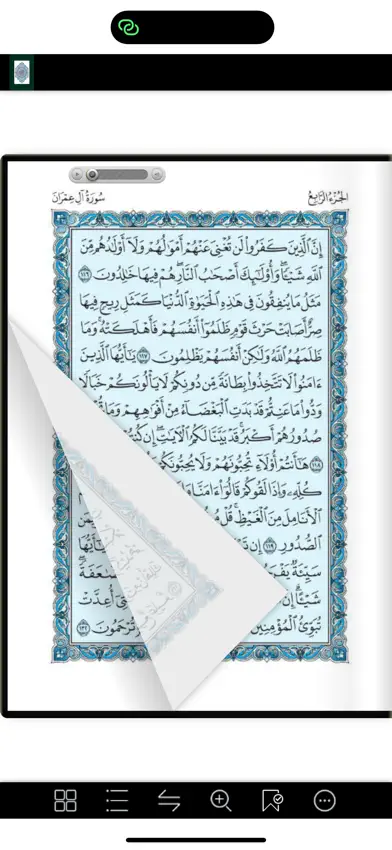 سُورَةُ آلِ عِمْرَانَ الجُزْءُ الرَّابِعُ
إِنَّ ٱلَّذِينَ كَفَرُوا۟ لَن تُغْنِىَ عَنْهُمْ أَمْوَٰلُهُمْ وَلَآ أَوْلَٰدُهُم مِّنَ
ٱللَّهِ شَيْـًٔا ۖ وَأُو۟لَٰٓئِكَ أَصْحَٰبُ ٱلنَّارِ ۚ هُمْ فِيهَا خَٰلِدُونَ ١١٦
مَثَلُ مَا يُنفِقُونَ فِى هَٰذِهِ ٱلْحَيَوٰةِ ٱلدُّنْيَا كَمَثَلِ رِيحٍ فِيهَا
صِرٌّ أَصَابَتْ حَرْثَ قَوْمٍ ظَلَمُوٓا۟ أَنفُسَهُمْ فَأَهْلَكَتْهُ ۚ وَمَا
ظَلَمَهُمُ ٱللَّهُ وَلَٰكِنْ أَنفُسَهُمْ يَظْلِمُونَ ١١٧ يَٰٓأَيُّهَا ٱلَّذِينَ
ءَامَنُوا۟ لَا تَتَّخِذُوا۟ بِطَانَةً مِّن دُونِكُمْ لَا يَأْلُونَكُمْ خَبَالًا
وَدُّوا۟ مَا عَنِتُّمْ قَدْ بَدَتِ ٱلْبَغْضَآءُ مِنْ أَفْوَٰهِهِمْ وَمَا
صُدُورُهُمْ أَكْبَرُ ۚ قَدْ بَيَّنَّا لَكُمُ ٱلْـَٔايَٰتِ ۖ إِن
١١٨ هَٰٓأَنتُمْ أُو۟لَآءِ تُحِبُّونَهُمْ وَلَا يُحِبُّونَكُمْ
كُلِّهِۦ وَإِذَا لَقُوكُمْ قَالُوٓا۟ ءَامَنَّا
ٱلْأَنَامِلَ مِنَ ٱلْغَيْظِ ۚ قُلْ
ٱلصُّدُورِ ١١٩ إِن
سَيِّئَةٌ
شَيْـًٔا ۗ إِنَّ أُعِدَّتْ
تُبَوِّئُ ٱلْمُؤْمِنِينَ تُرْحَمُونَ ١٣٢